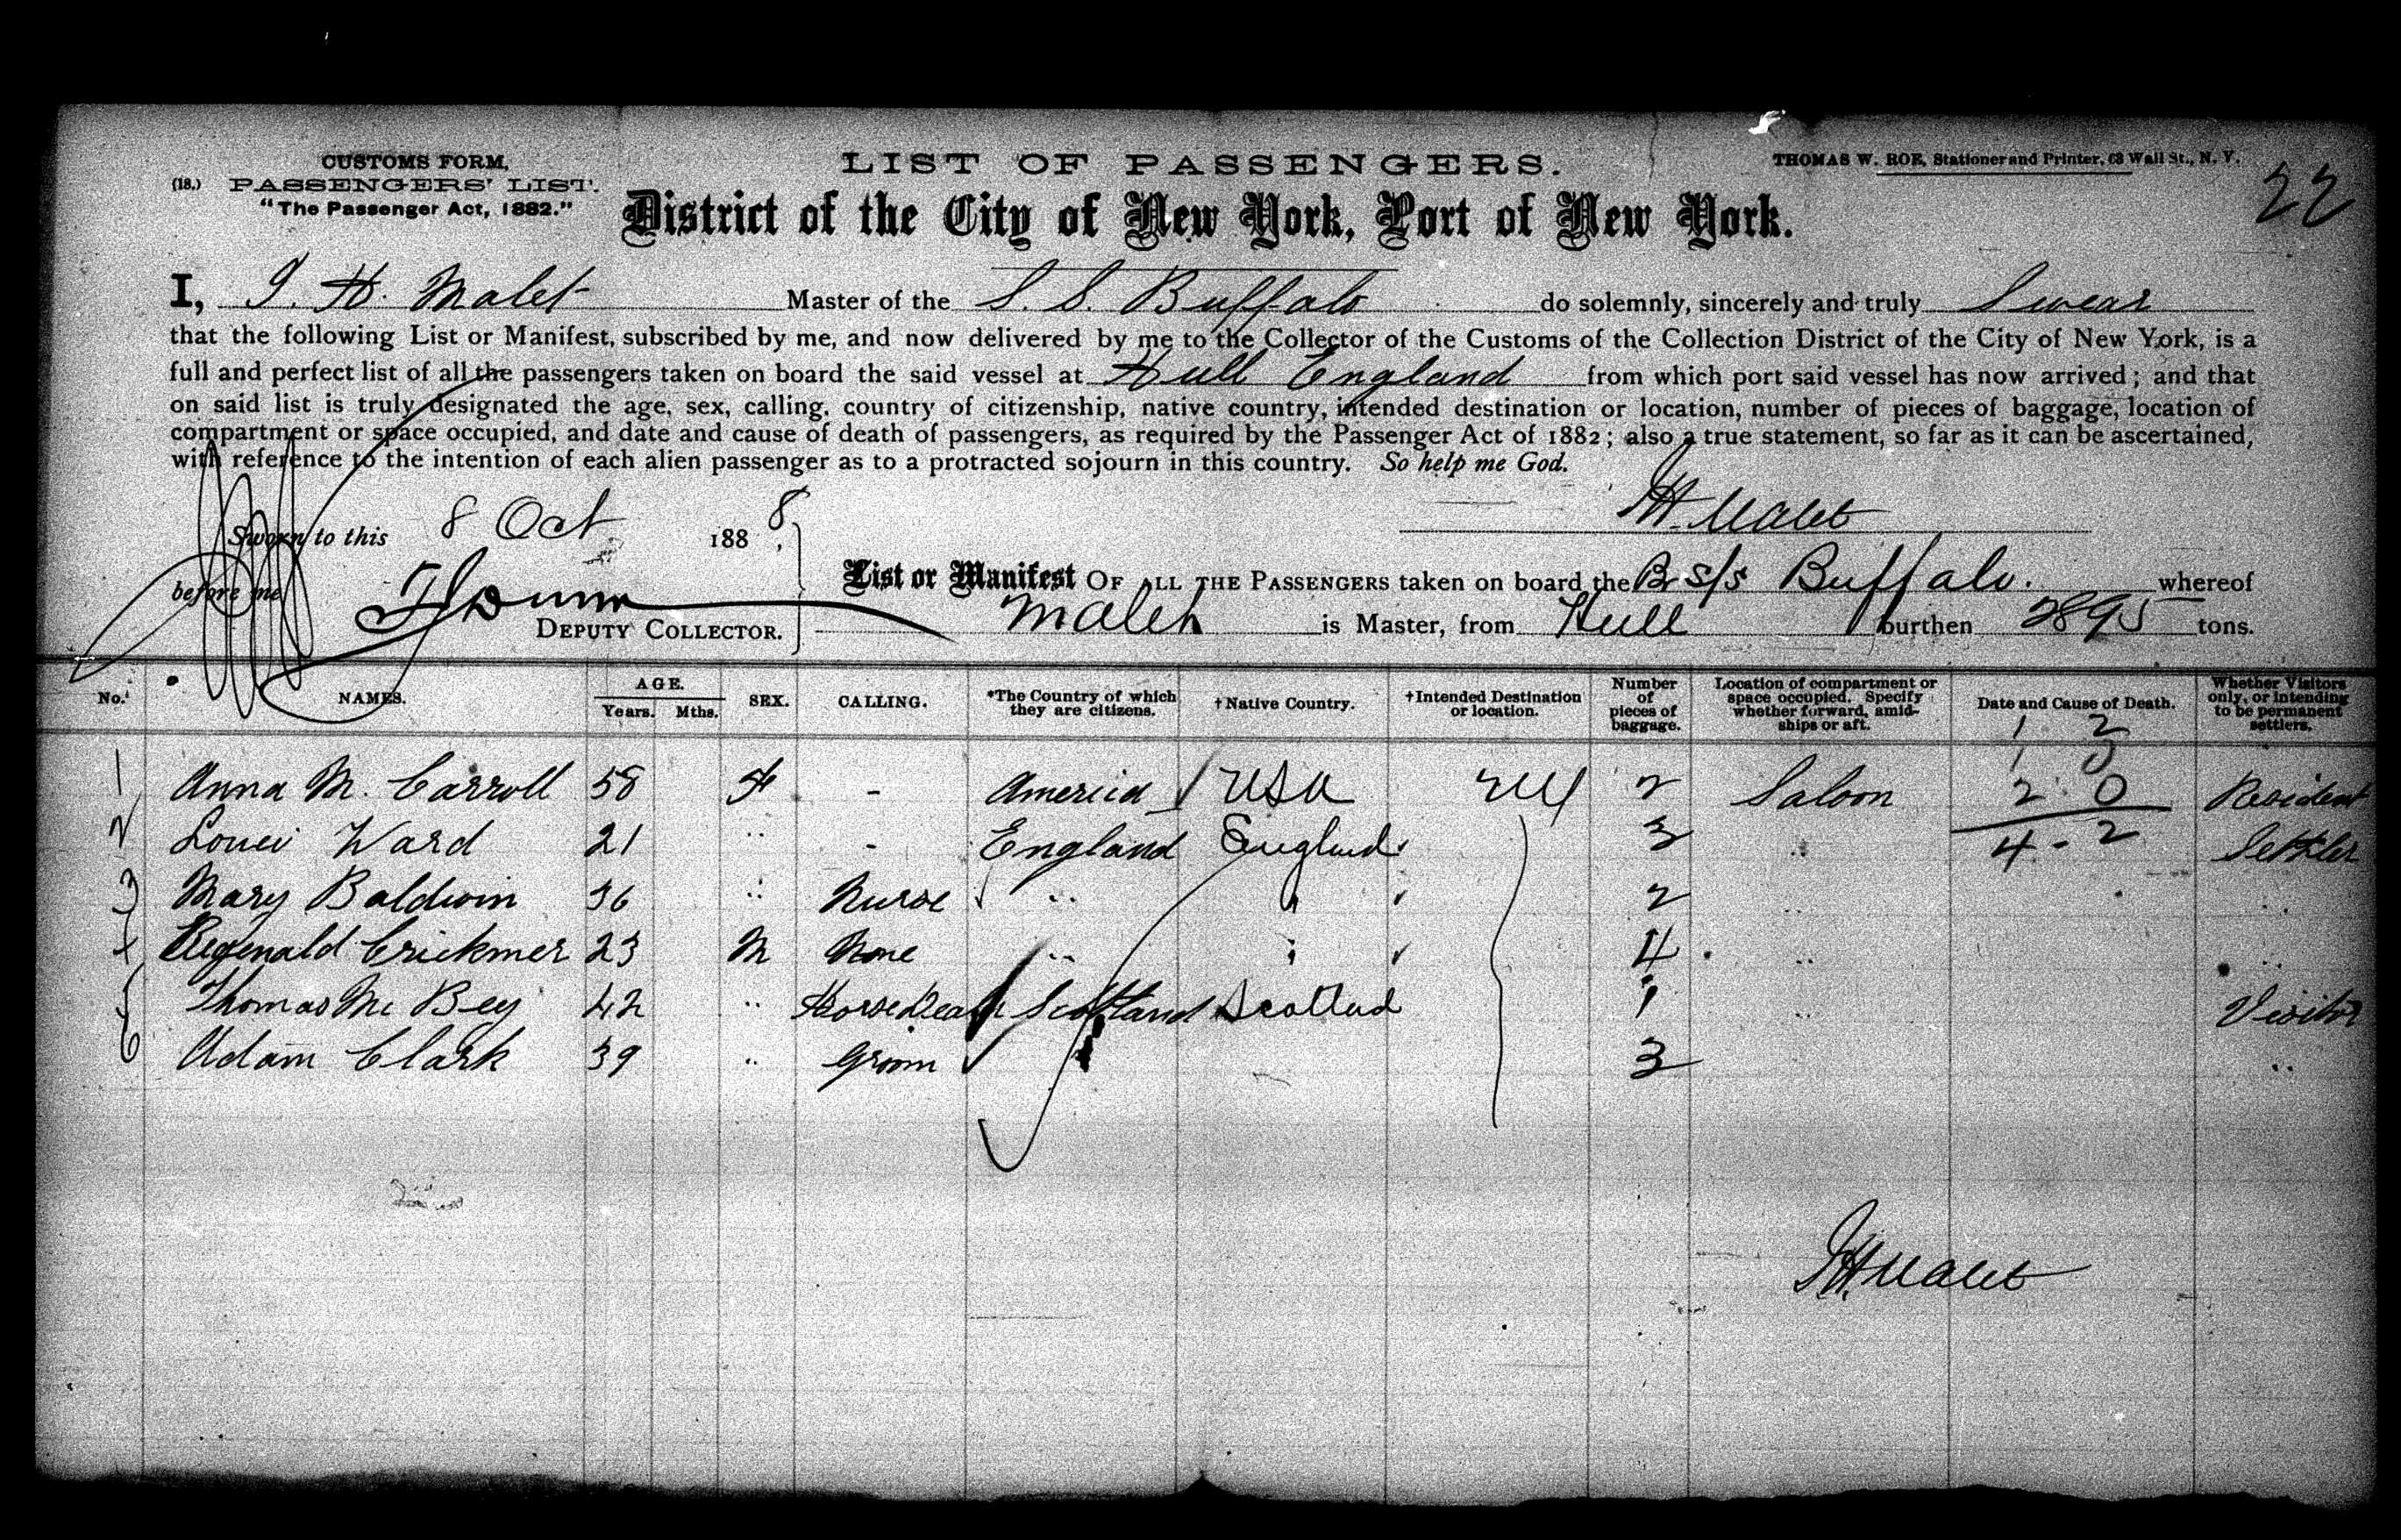 CUSTOMS FORM,
(18.) PASSENGERS' LIST.
"The Passenger Act, 1882."
LIST OF PASSENGERS.
THOMAS W. ROE, Stationer and Printer, 68 Wall St., N. Y.
22
District of the City of New York, Port of New York.
I, J. H. Malet Master of the S. S. Buffalo do solemnly, sincerely and truly Swear
that the following List or Manifest, subscribed by me, and now delivered by me to the Collector of the Customs of the Collection District of the City of New York, is a
full and perfect list of all the passengers taken on board the said vessel at Hull England from which port said vessel has now arrived; and that
on said list is truly designated the age, sex, calling, country of citizenship, native country, intended destination or location, number of pieces of baggage, location of
compartment or space occupied, and date and cause of death of passengers, as required by the Passenger Act of 1882; also a true statement, so far as it can be ascertained,
with reference to the intention of each alien passenger as to a protracted sojourn in this country. So help me God.
JH Malet
Sworn to this 8 Oct 1888
before me
DEPUTY COLLECTOR.
List or Manifest OF ALL THE PASSENGERS taken on board the Br s/s Buffalo. whereof
Malet is Master, from Hull burthen 2895 tons.
No. NAMES. AGE. Years. Mths. SEX. CALLING. *The Country of which they are citizens. †Native Country. †Intended Destination or location. Number of pieces of baggage. Location of compartment or space occupied. Specify whether forward, amidships or aft. Date and Cause of Death. Whether Visitors only, or intending to be permanent settlers.
1 2
1 0
1 Anna M. Carroll 58 F - America USA 2 Saloon 2 0 Resident
2 Louei Ward 21 " - England England 3 " 4 - 2 Settler
3 Mary Baldwin 36 " Nurse " " 2 " "
4 Regenald Crickmer 23 M None " " 4 " "
5 Thomas Mc Bey 42 " Horse Dealr Scotland Scotland 1 " Visitor
6 Adam Clark 39 " Groom 3 "
JH Malet